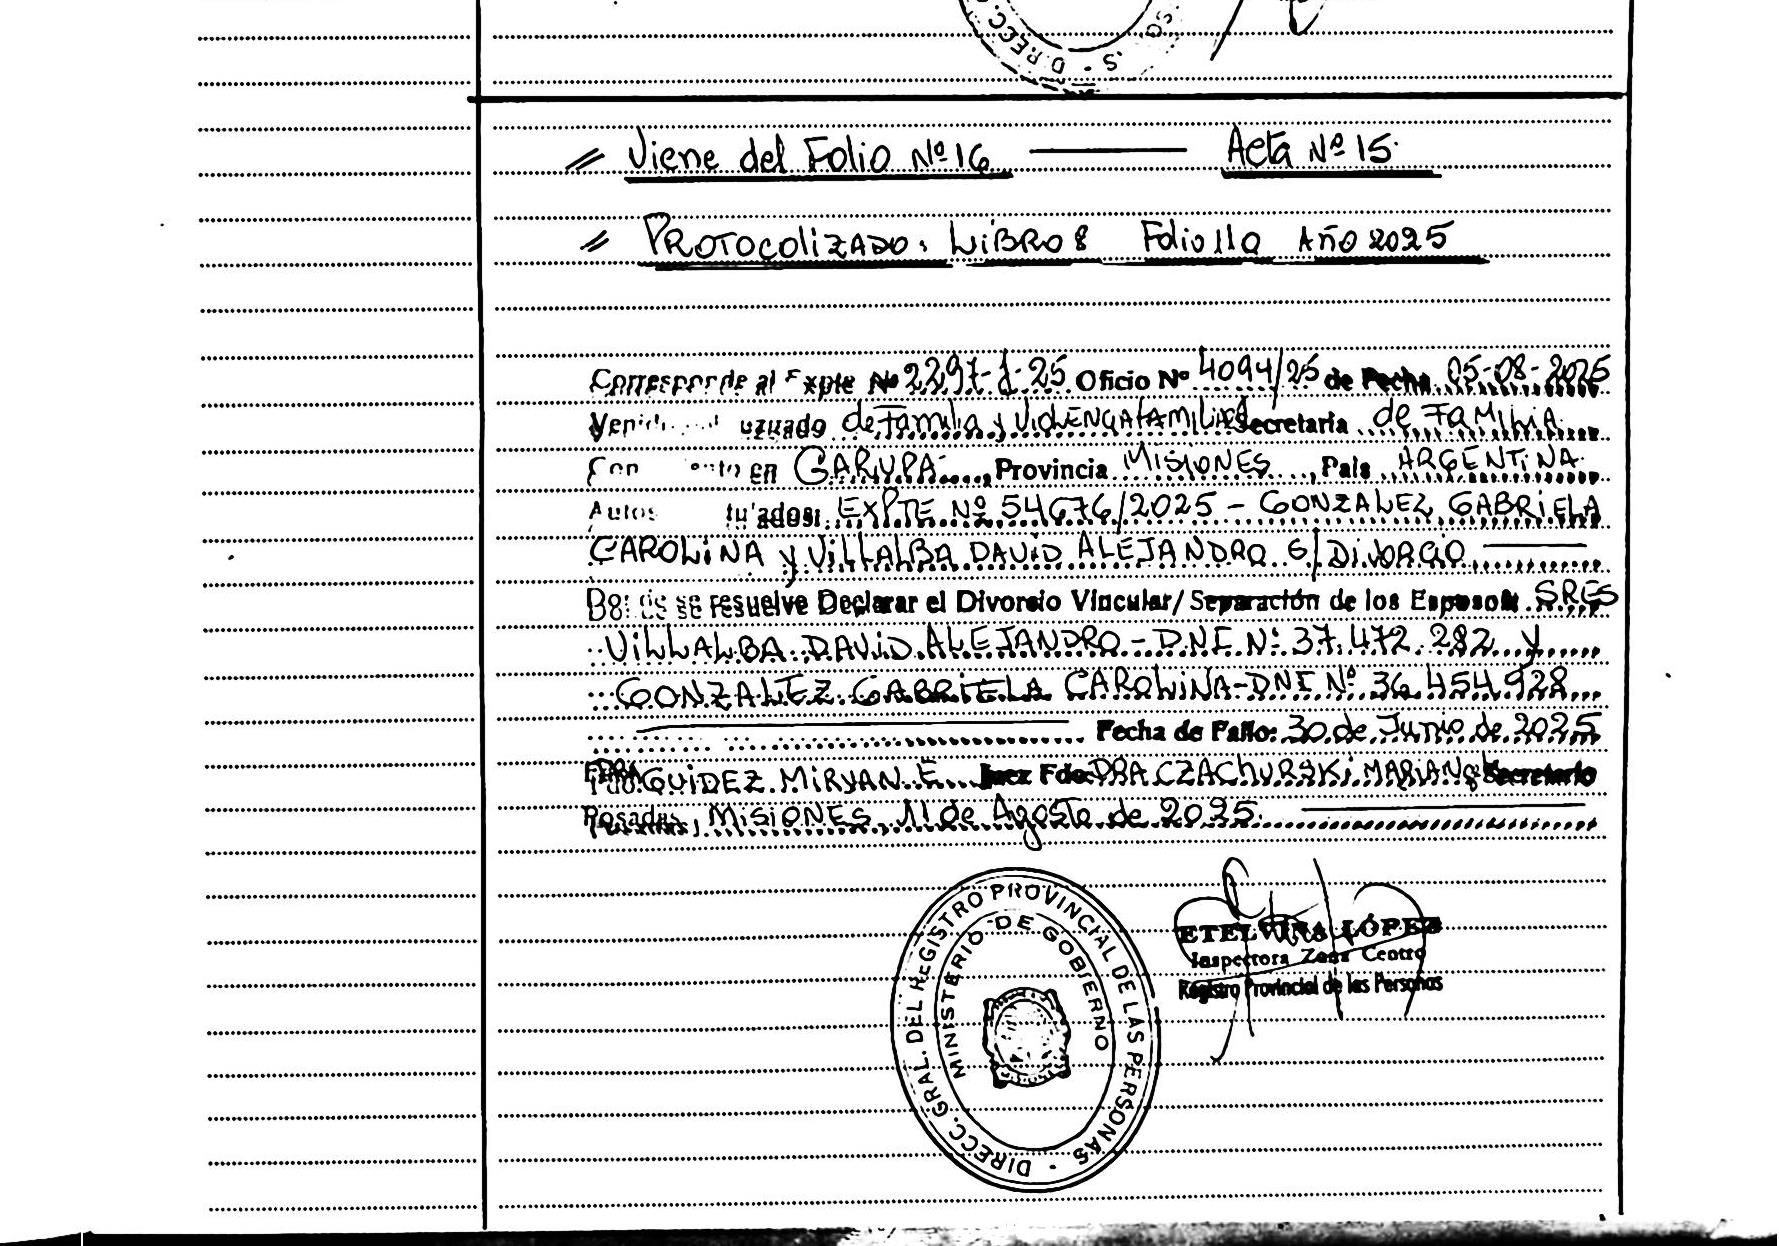 DIRECC.
// Viene del Folio Nº 16 —— Acta Nº 15.
// PROTOCOLIZADO: LIBRO 8 Folio 110 AÑO 2025
Corresponde al Expte Nº 2297-J-25 Oficio Nº 4094/25 de Fecha 05-08-2025
de Familia y VIOLENCIA FAMILIAR Secretaria de FAMILIA
en GARUPA, Provincia MISIONES, País ARGENTINA.
Autos EXPTE Nº 54676/2025 - GONZALEZ GABRIELA
CAROLINA y VILLALBA DAVID ALEJANDRO S/DIVORCIO
se resuelve Declarar el Divorcio Vincular/Separación de los Esposos SRES
VILLALBA DAVID ALEJANDRO - D.N.I Nº 37.472.282 y
GONZALEZ GABRIELA CAROLINA - DNI Nº 36.454.928
Fecha de Fallo: 30 de Junio de 2025
DRA GUIDEZ MIRYAN E. Juez Fdo: DRA CZACHURSKI MARIANA Secretario
Posadas, MISIONES, 11 de Agosto de 2025.
DIRECC. GRAL. DEL REGISTRO PROVINCIAL DE LAS PERSONAS
MINISTERIO DE GOBIERNO
ETELVINA LÓPEZ
Inspectora Zona Centro
Registro Provincial de las Personas